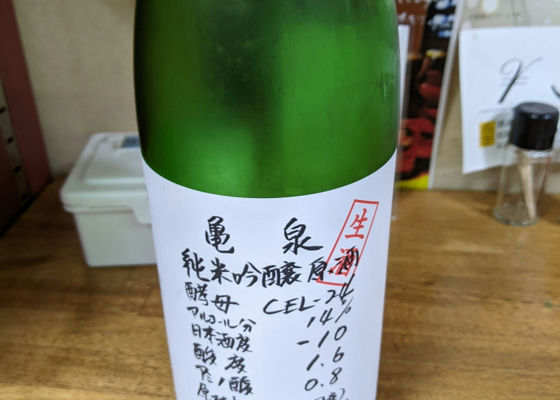 亀泉
生酒
純米吟醸原酒
酵母 CEL-24
アルコール分 14%
日本酒度 -10
酸度 1.6
アミノ酸 0.8